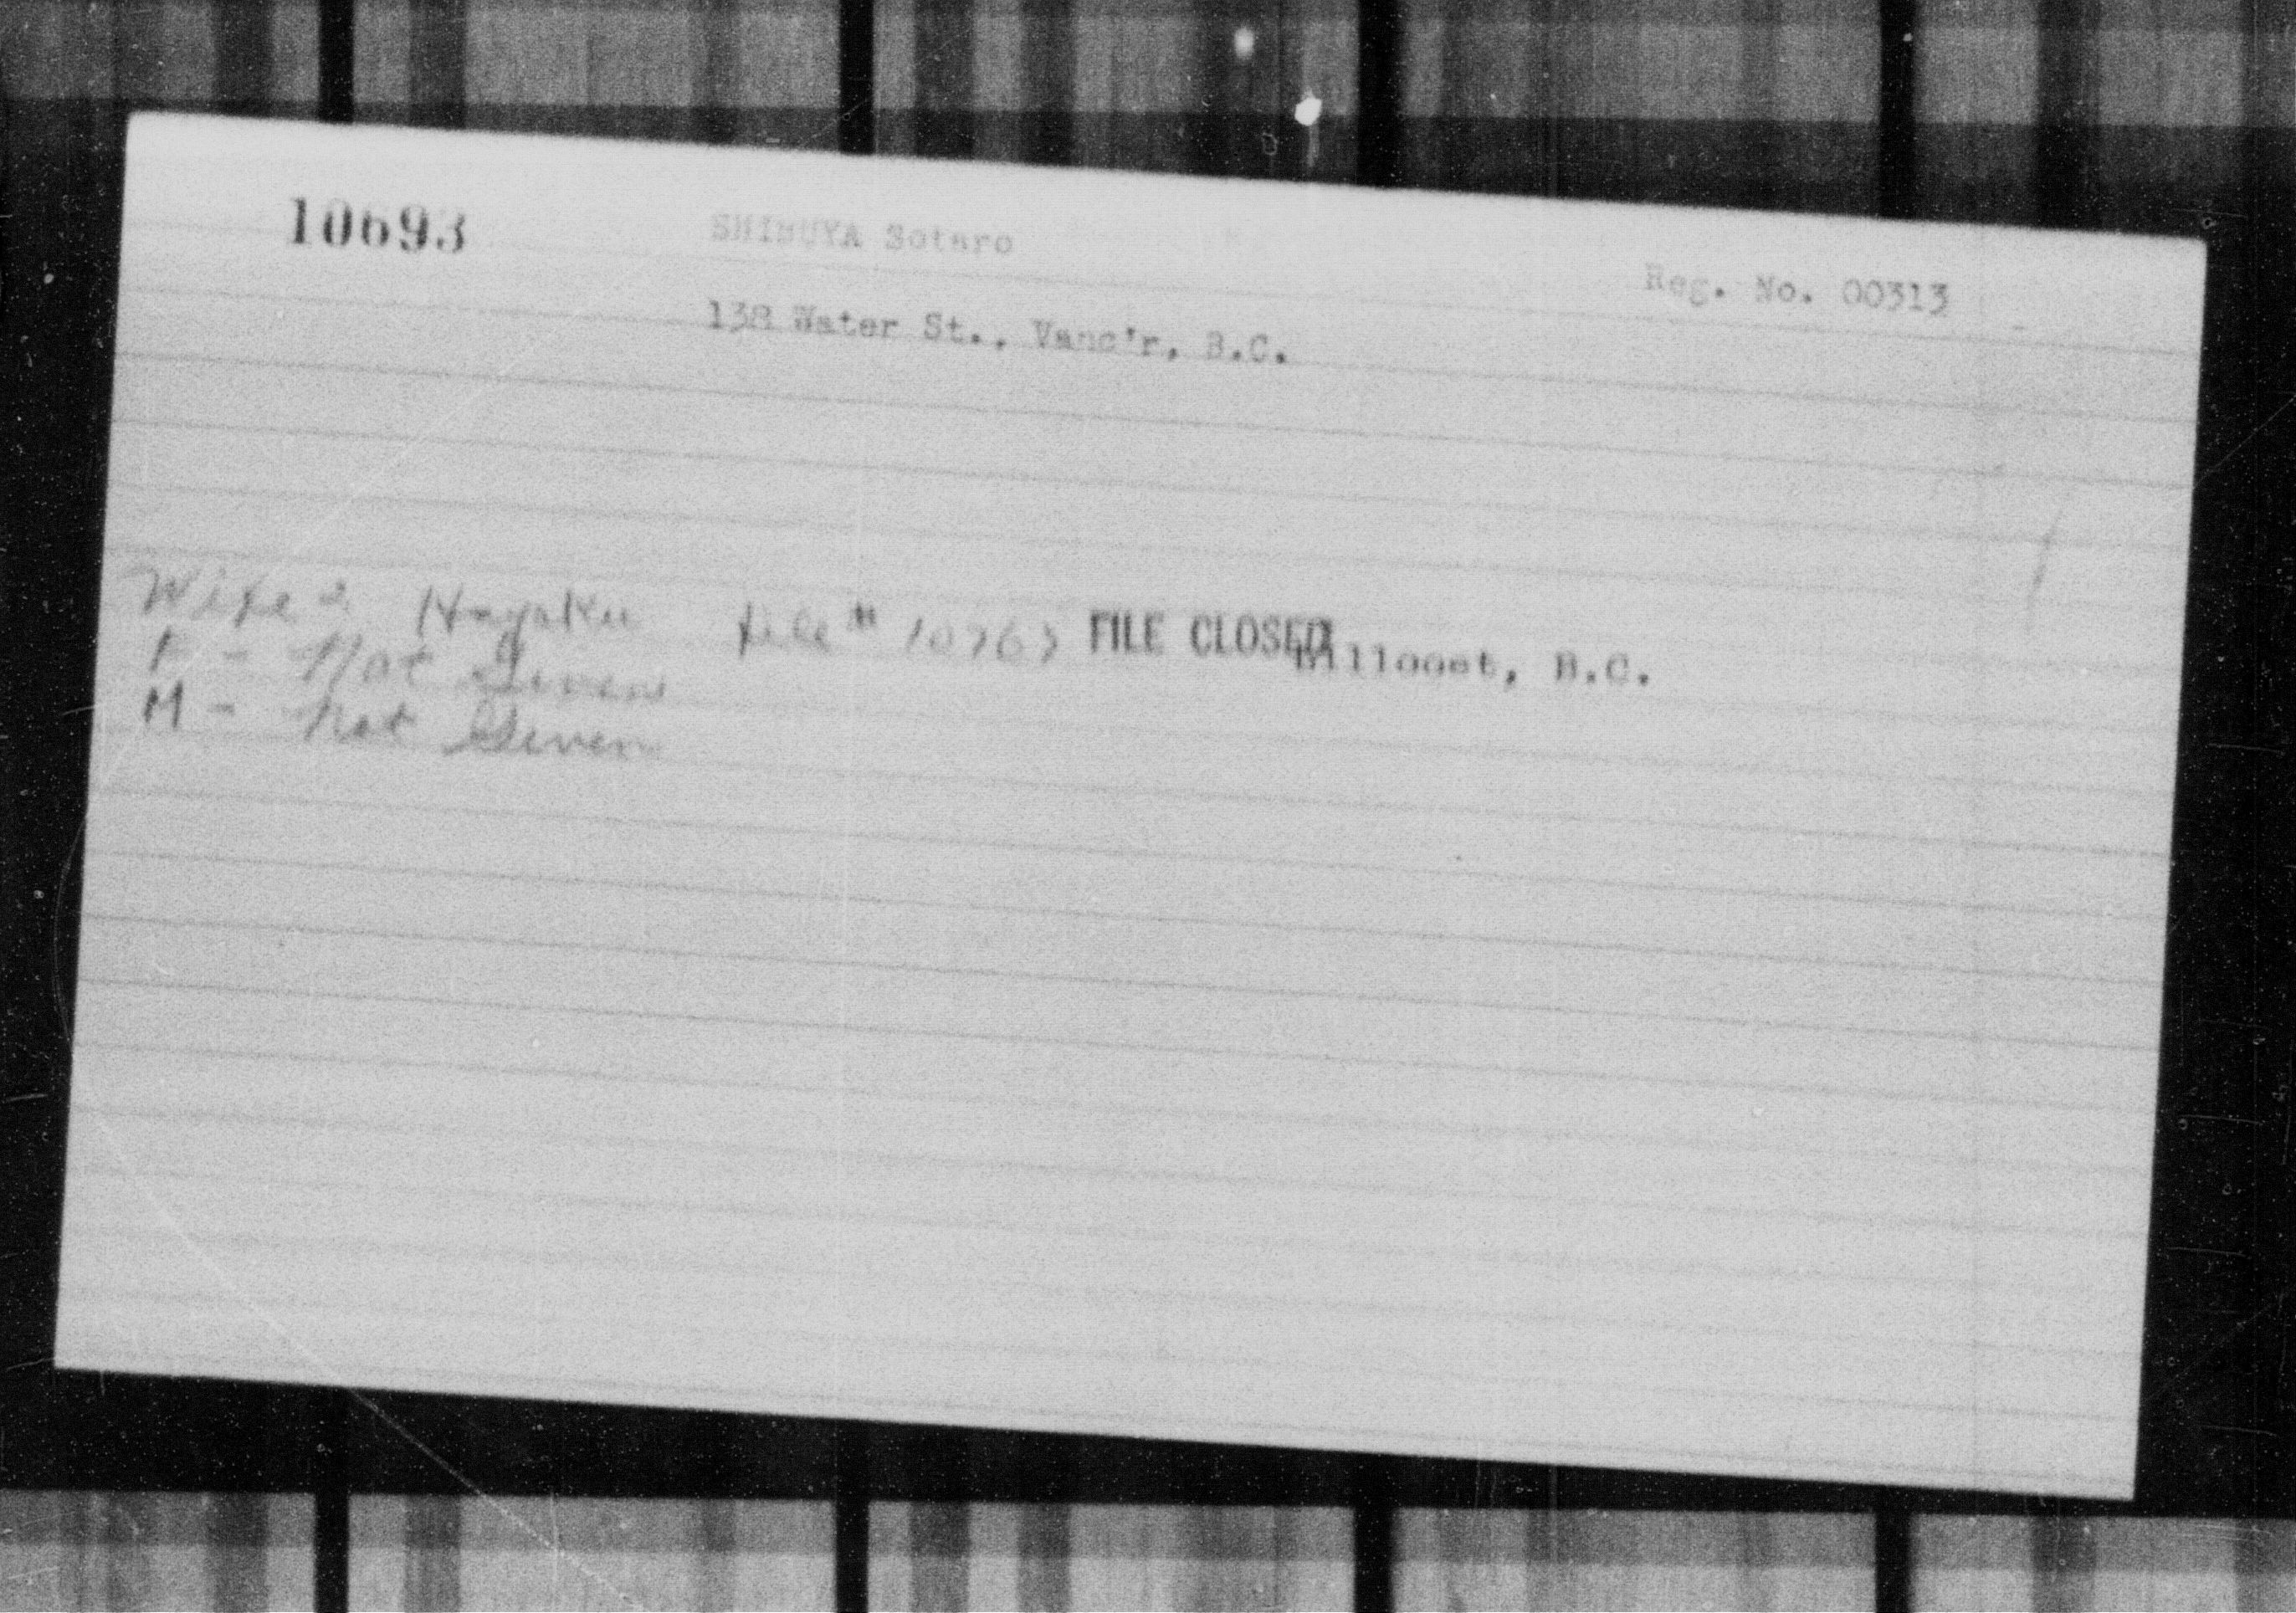 10693 SHIBUYA Sotaro Reg. No. 00313
138 Water St., Vanc'r, B.C.
Wife - Hayaku file # 10763 FILE CLOSED Lillooet, B.C.
F - Not Given
M - Not Given